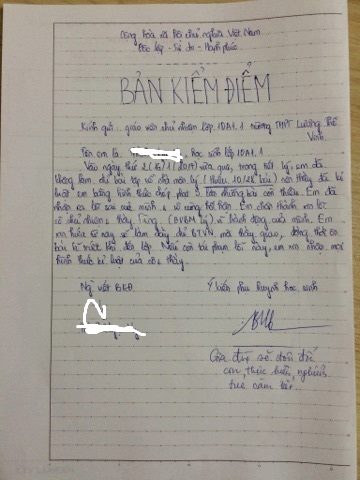 Cộng hòa xã hội chủ nghĩa Việt Nam
Độc lập - Tự do - Hạnh phúc
BẢN KIỂM ĐIỂM
Kính gửi: giáo viên chủ nhiệm lớp 10A1.1 trường THPT Lương Thế
Vinh.
Tên em là: , học sinh lớp 10A1.1
Vào ngày thứ 2 (16/1/2017) vừa qua, trong tiết lý, em đã
không làm đủ bài tập về nhà môn lý (thiếu 10/22 bài) nên thầy đã kỉ
luật em bằng hình thức chép phạt 5 lần những bài còn thiếu. Em đã
nhận ra lỗi của mình & vô cùng hối hận. Em chân thành xin lỗi
cô chủ nhiệm & thầy Tùng (GVBM lý) vì hành động của mình. Em
xin hứa từ nay sẽ làm đầy đủ BTVN mà thầy giao, đồng thời ôn
bài kĩ trước khi đến lớp. Nếu còn tái phạm lỗi này, em xin nhận mọi
hình thức kỉ luật của cô & thầy.
Người viết BKĐ
Ý kiến phụ huynh học sinh
Gia đình sẽ đôn đốc
con thực hiện nghiêm
túc cam kết.